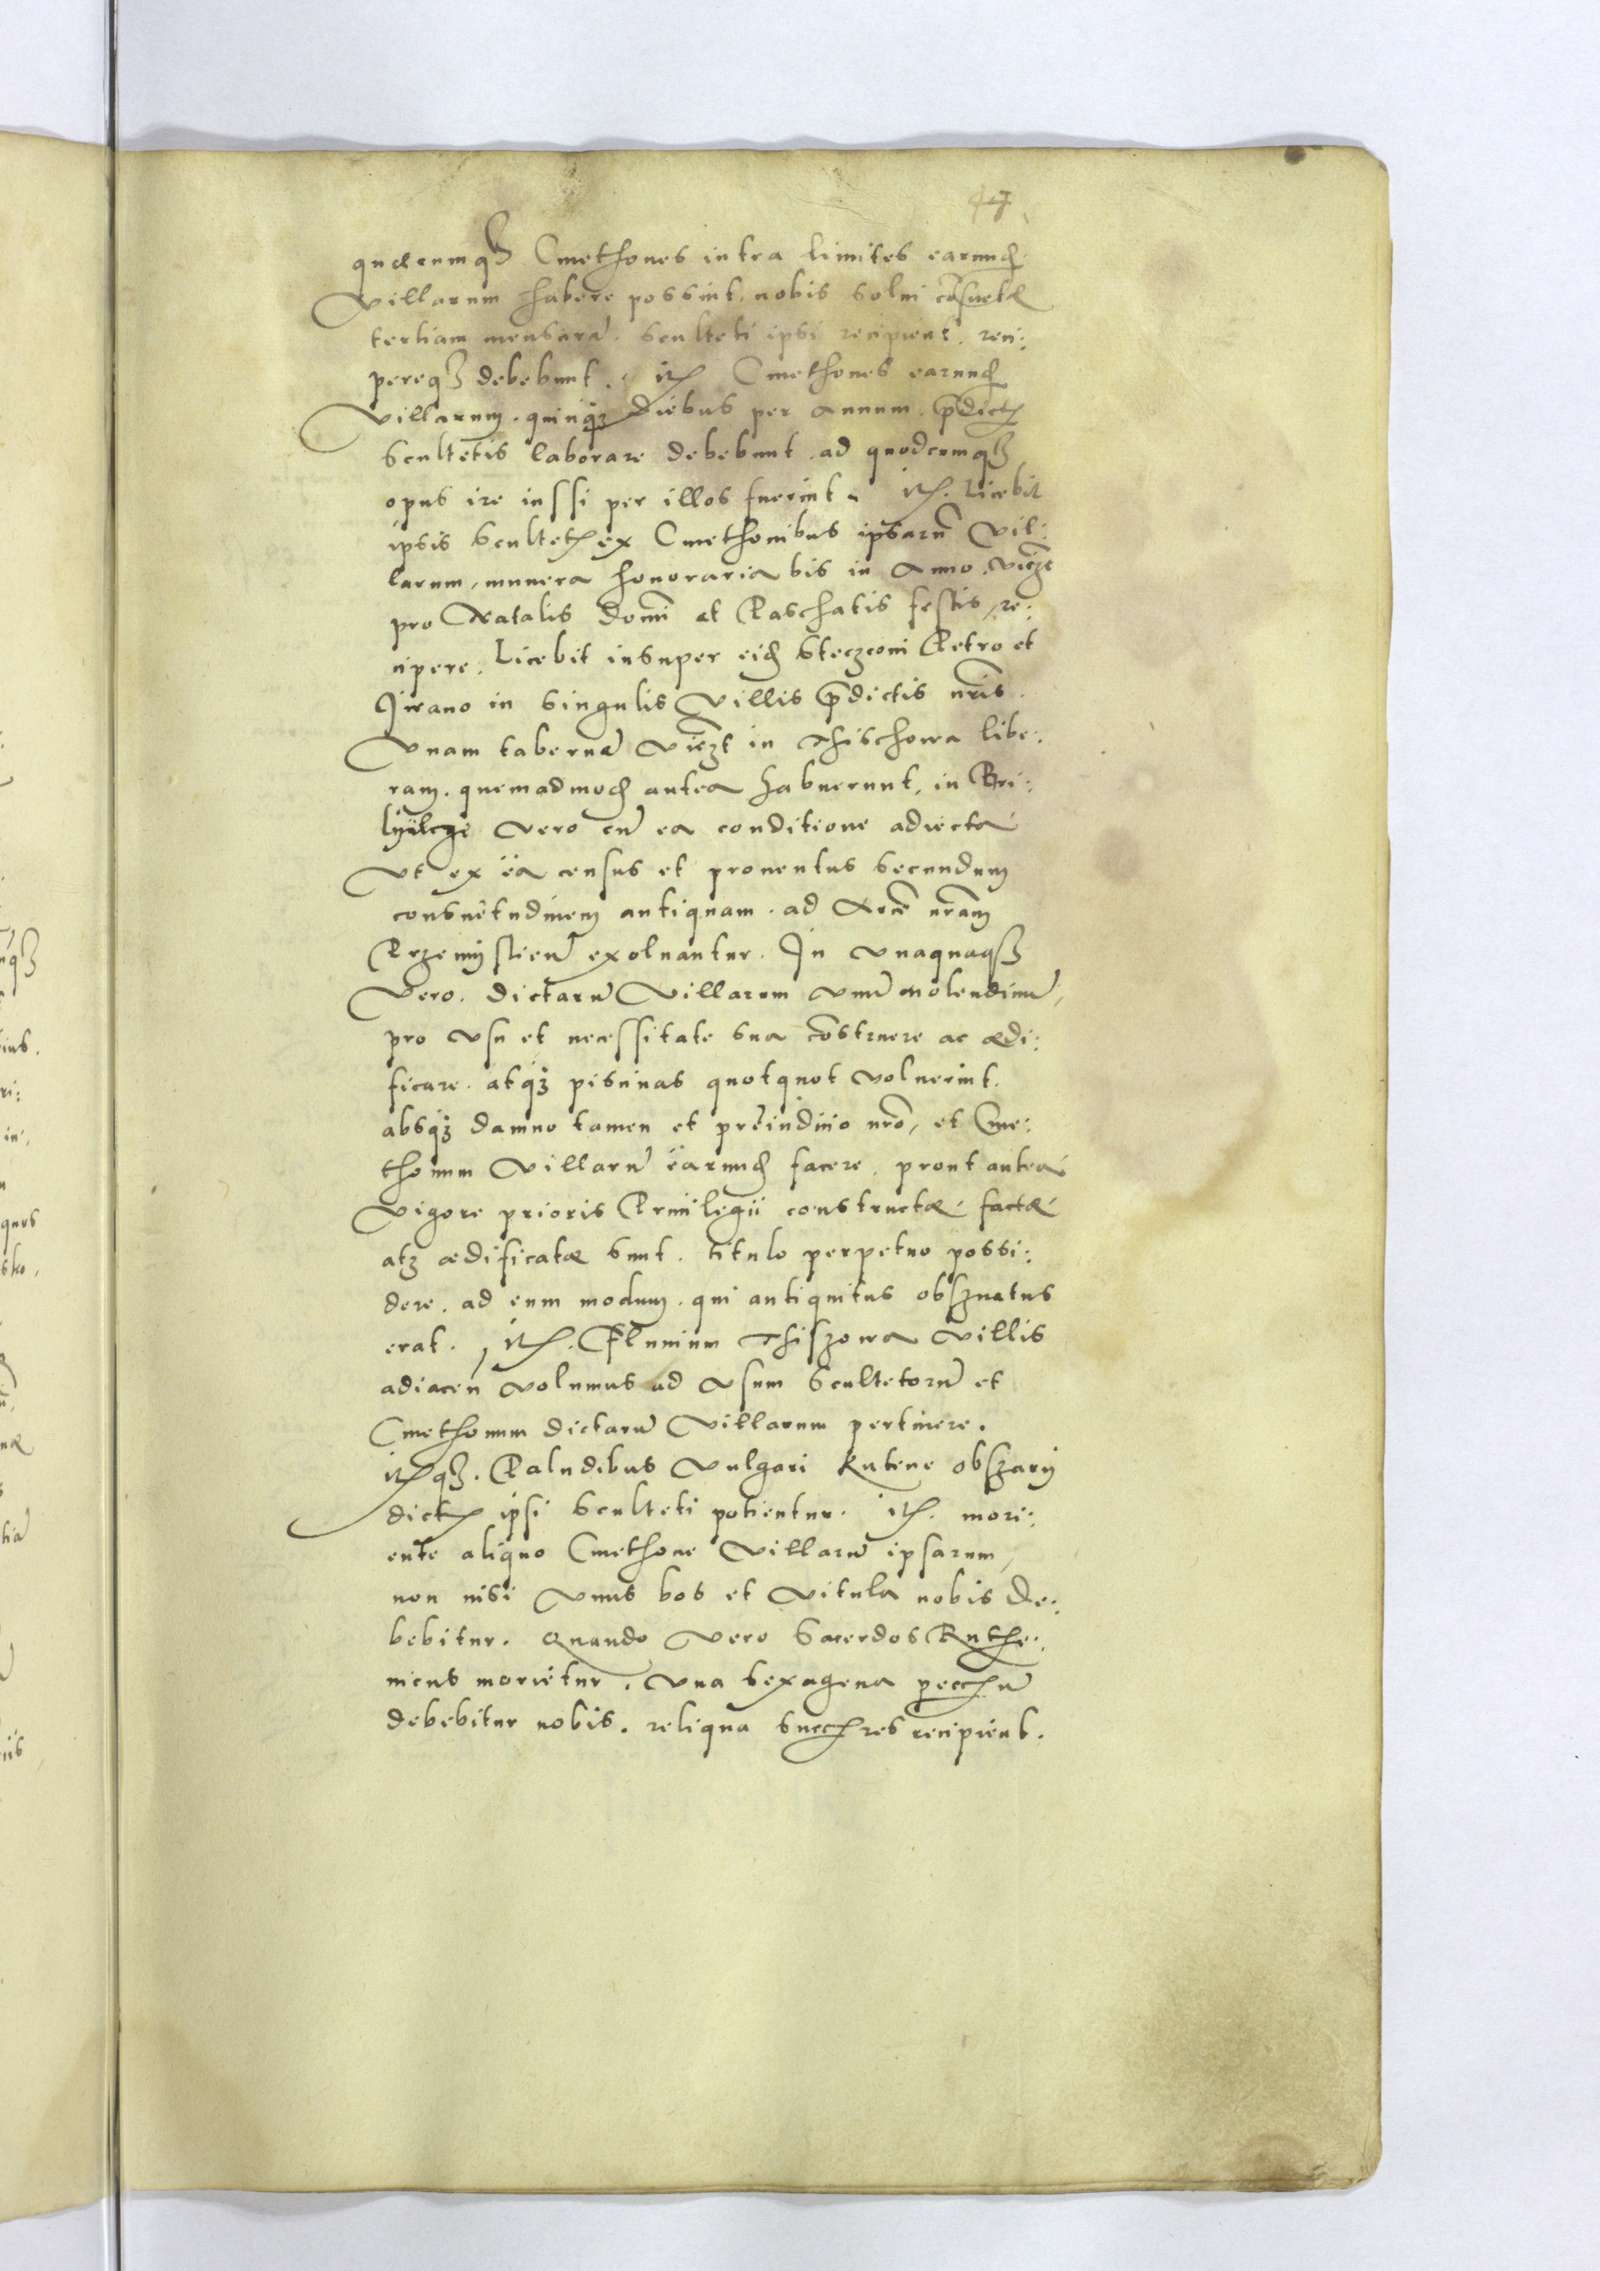 47
quaecumq₃ Cmethones intra limites earund
Villarum habere possint, nobis solui cōsuetae
tertiam mensurā. Sculteti ipsi recipient, reci:
pereq₃ debebunt. Itē Cmethones earund
Villarum. quinq₃ diebus per annum. p̄dictis
scultetis laborare debebunt. ad quodcumq₃
opus ire iussi per illos fuerint. Itē. Licebit
ipsis scultetis ex Cmethonibus ipsarū Vil:
larum, munera honoraria bis in Anno. videlt
pro Natalis domi et Paschatis festis, re:
cipere. Licebit insuper eisd Steczconi Petro et
Iwano in singulis Villis p̄dictis nr̄is.
Vnam tabernā videlt in Thischowa libe:
ram. quemadmod antea habuerunt, in Bri:
lijilcze vero cū ea conditione adiecta
Vt ex ea census et prouentus secundum
consuetudinem antiquam. ad Arcē nr̄am
Przemijsliēn exoluantur. In vnaquaq₃
Vero. dictarū Villarum vnū molendinū,
pro vsu et necessitate sua cōstruere ac aedi:
ficare. atq₃ piscinas quotquot voluerint.
absq₃ damno tamen et preiudicio nr̄o, et Cme:
thonum Villarū earund facere, prout antea
Vigore prioris Priuilegii constructae factae
atq₃ aedificatae sunt. titulo perpetuo possi:
dere. ad eum modum. qui antiquitus obseruatus
erat. Itē. Fluuium Thiszowa Villis
adiacen volumus ad vsum Scultetorū et
Cmethonum dictarū Villarum pertinere.
Itēq₃. Paludibus Vulgari Rutene obszarij
dictis ipsi Sculteti potientur. Itē. mori:
ente aliquo Cmethone Villarū ipsarum,
non nisi vnus bos et vitula nobis de:
bebitur. Quando Vero Sacerdos Ruthe:
nicus morietur. vna sexagena
debebitur nobis. reliqua succres recipient.